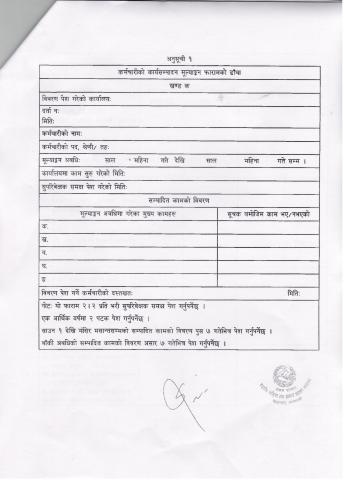 अनुसूची १
कर्मचारीको कार्यसम्पादन मूल्याङ्कन फारामको ढाँचा
खण्ड क
विवरण पेश गरेको कार्यालयः
दर्ता नंः
मितिः
कर्मचारीको नामः
कर्मचारीको पद, श्रेणी/ तहः
मूल्याङ्कन अवधिः साल महिना गते देखि साल महिना गते सम्म ।
कार्यालयमा काम सुरु गरेको मितिः
सुपरिवेक्षक समक्ष पेश गरेको मितिः
सम्पादित कामको विवरण
मूल्याङ्कन अवधिमा गरेका मुख्य कामहरु सूचक बमोजिम काम भए/नभएको
क.
ख.
ग.
घ.
ङ
विवरण पेश गर्ने कर्मचारीको दस्तखतः मितिः
नोटः यो फाराम २।२ प्रति भरी सुपरिवेक्षक समक्ष पेश गर्नुपर्नेछ ।
एक आर्थिक वर्षमा २ पटक पेश गर्नुपर्नेछ ।
साउन १ देखि मंसिर मसान्तसम्मको सम्पादित कामको विवरण पुस ७ गतेभित्र पेश गर्नुपर्नेछ ।
बाँकी अवधिको सम्पादित कामको विवरण असार ७ गतेभित्र पेश गर्नुपर्नेछ ।